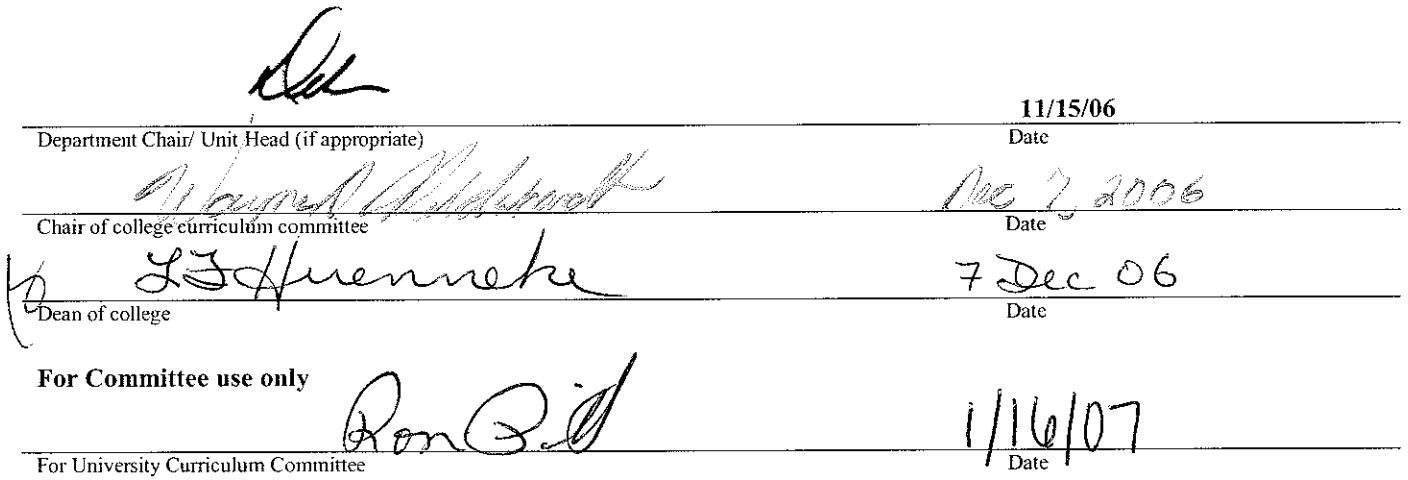 11/15/06
Department Chair/ Unit Head (if appropriate) Date
Dec 7, 2006
Chair of college curriculum committee Date
LF Huenneke 7 Dec 06
Dean of college Date
For Committee use only
Ron 1/16/07
For University Curriculum Committee Date